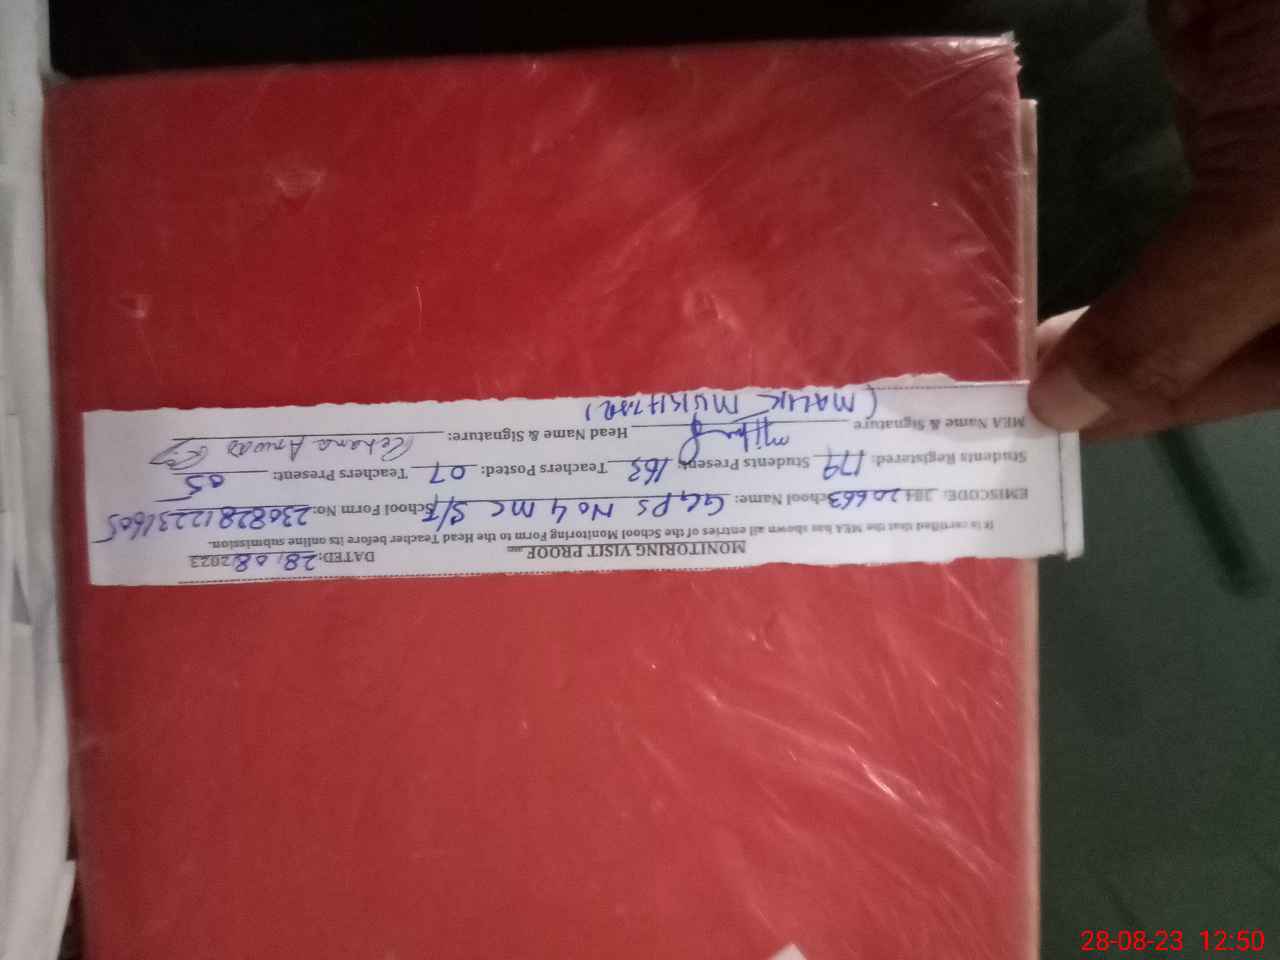 MONITORING VISIT PROOF
DATED: 28.08.2023
It is certified that the MEA has shown all entries of the School Monitoring Form to the Head Teacher before its online submission.
EMISCODE: 38120663 School Name: GGPS No 4 MC S/T School Form No: 23082812231605
Students Registered: 179 Students Present: 163 Teachers Posted: 07 Teachers Present: 05
MEA Name & Signature Head Name & Signature: Rehana Anwar
(MALIK MUKHTAR)
28-08-23 12:50